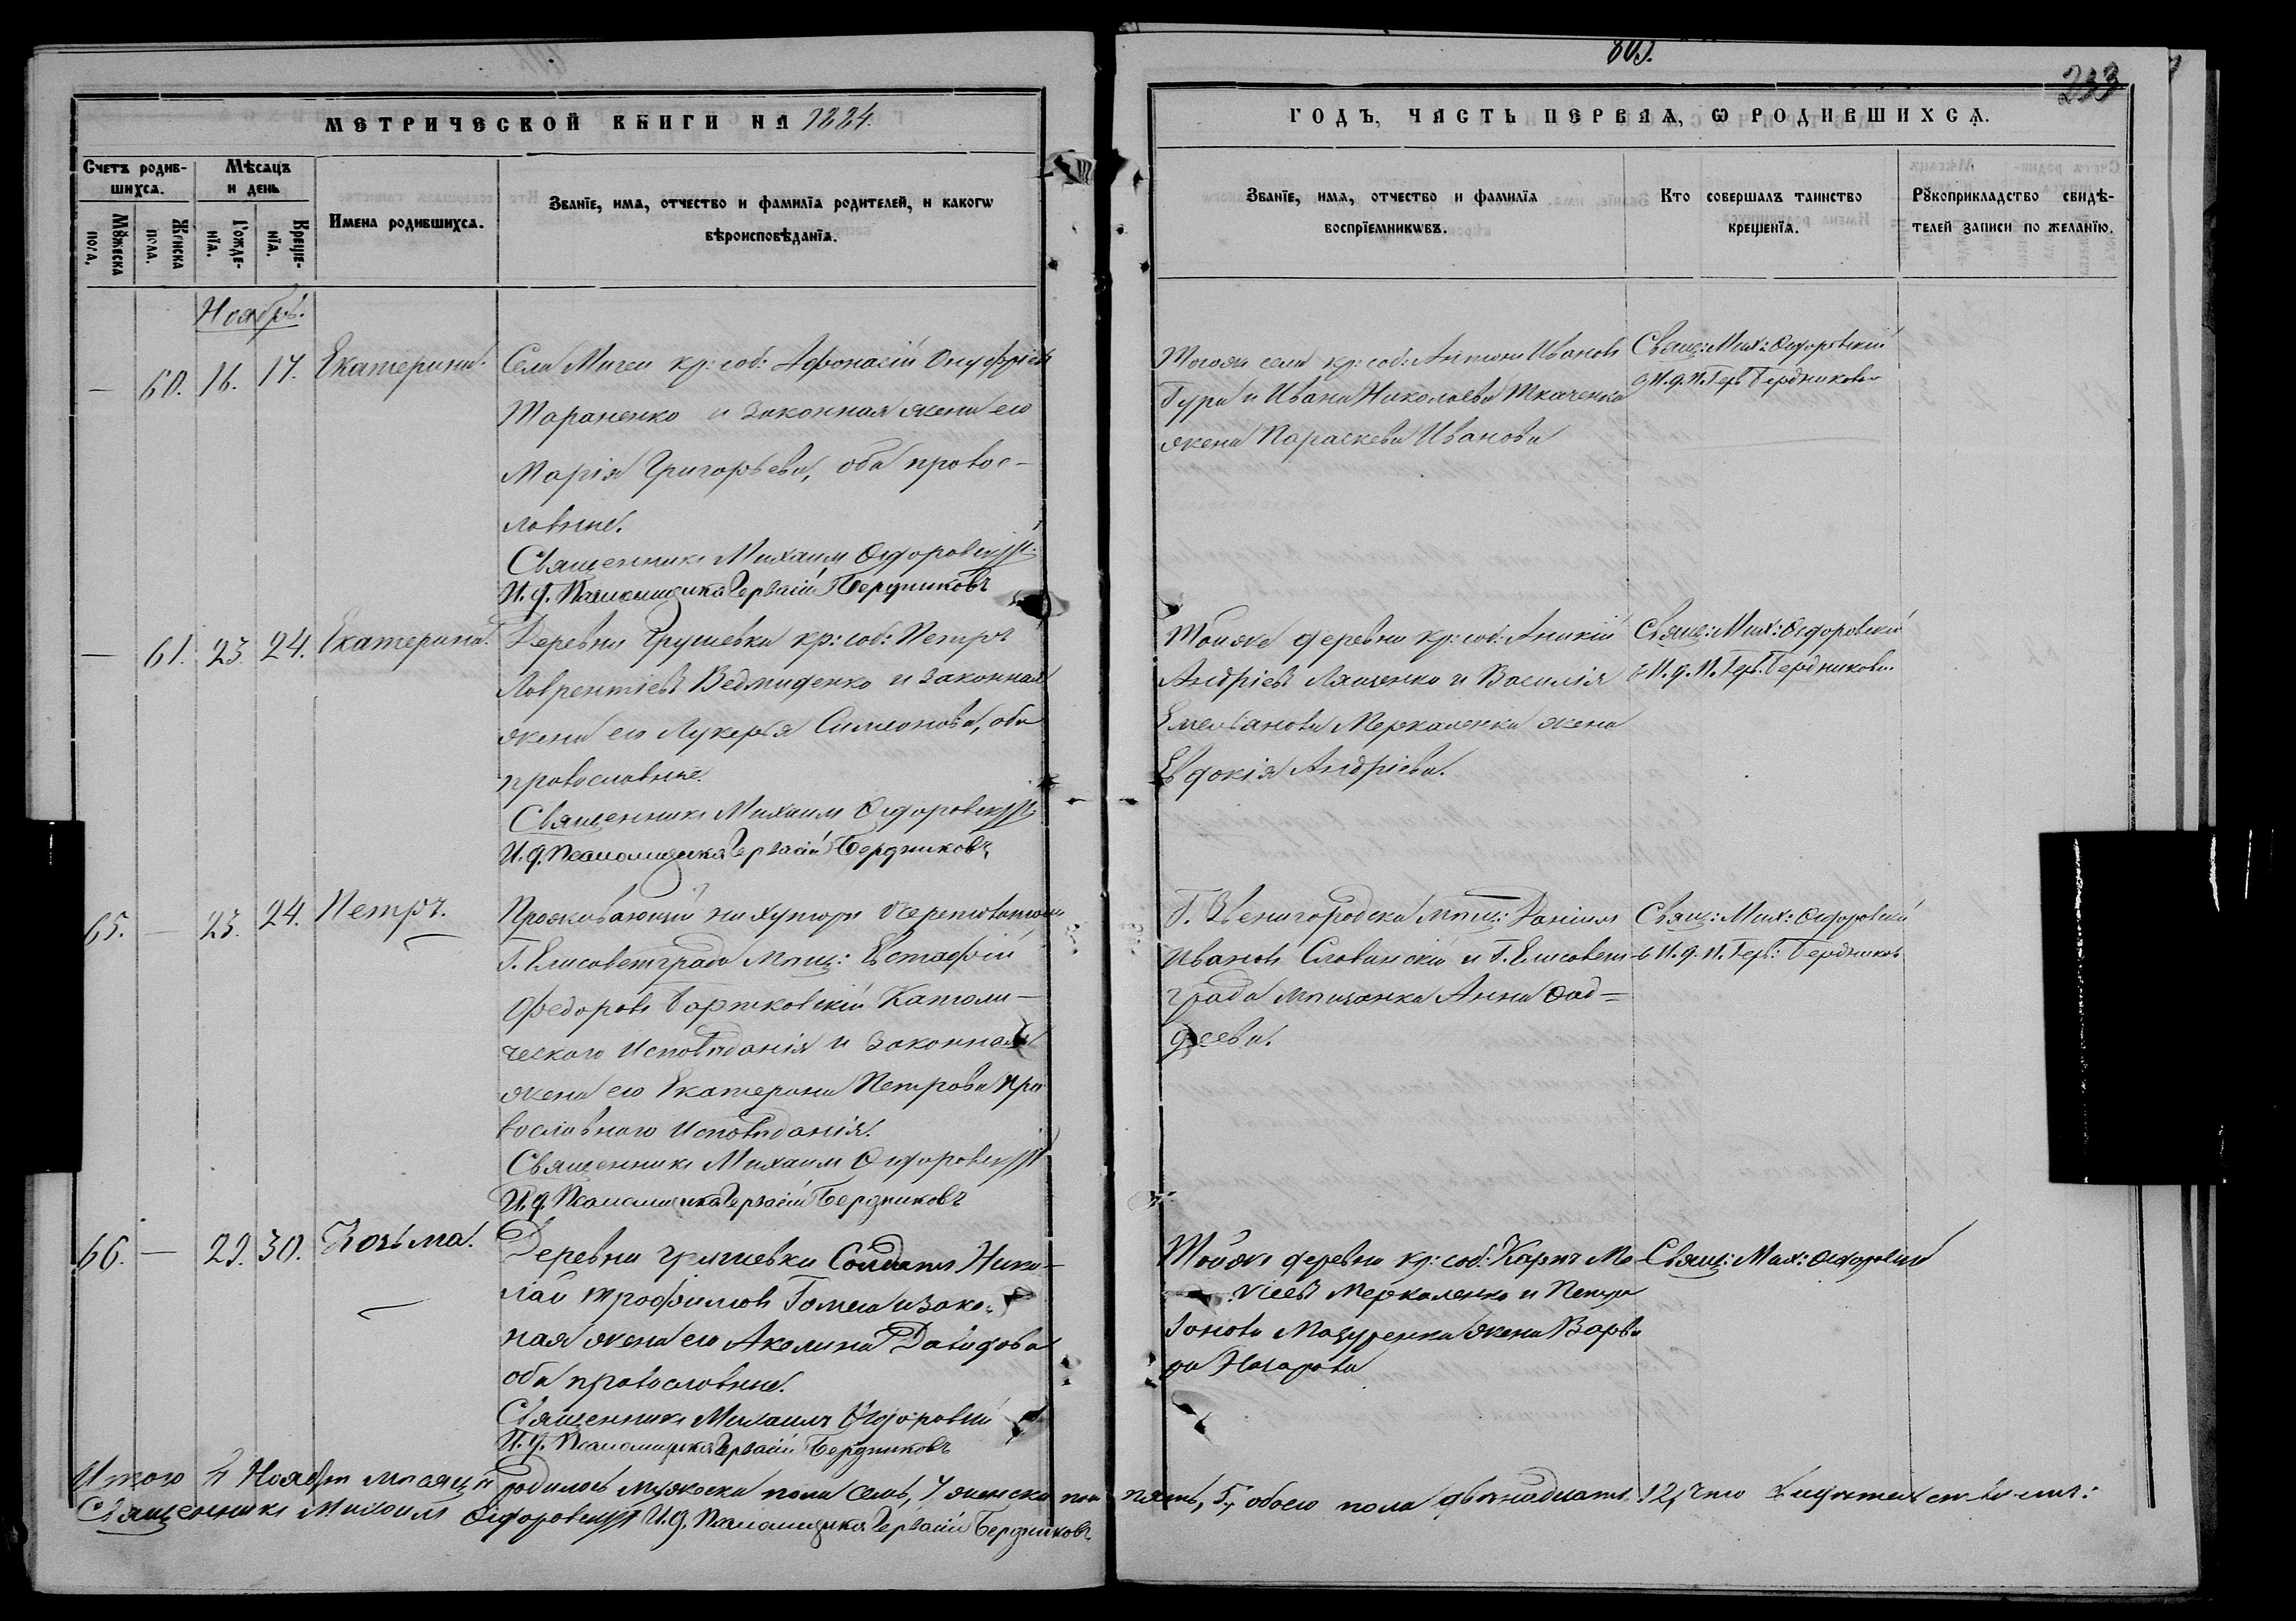 803.
233
МЕТРИЧЕСКОЙ КНИГИ НА 1884.
ГОДЪ, ЧАСТЬ ПЕРВАЯ, Ѡ РОДИВШИХСѦ.
Счетъ родив-
шихсѧ.
Мѣсѧцъ
и день
Мꙋжеска
пола,
Женска
пола.
Рожде-
нїѧ.
Креще-
нїѧ.
Имена родившихсѧ.
Званїе, имѧ, отчество и фамилїѧ родителей, и какогѡ
вѣроисповѣданїѧ.
Званїе, имѧ, отчество и фамилїѧ
воспрїемникѡвъ.
Кто совершалъ таинство
крещенїѧ.
Рꙋкоприкладство свидѣ-
телей записи по желанїю.
Ноябрь.
— 60. 16. 17. Екатерина.
Села Мигеи кр: соб: Афонасій Онуфріевъ
Тараненко и законная жена его
Марія Григорьева, оба правос-
лавные.
Священникъ Михаилъ Ѳедоровскій
И. д. Псаломщика Гервасій Бердниковъ
Тогожъ села кр: соб: Антонъ Ивановъ
Гура и Ивана Николаева Ткаченка
жена Параскева Иванова
Свящ: Мих: Ѳедоровскій
съ И. д. П. Герв. Бердниковъ
— 61. 23. 24. Екатерина.
Деревни Грушевки кр: соб: Петръ
Лаврентіевъ Ведмиденко и законная
жена его Лукерья Симеонова, оба
православные.
Священникъ Михаилъ Ѳедоровскій
И. д. Псаломщика Гервасій Бердниковъ
Тойже деревни кр: соб: Аникій
Андріевъ Лященко и Василія
Емельянова Меркаленка жена
Евдокія Андріева.
Свящ: Мих: Ѳедоровскій
съ И. д. П. Герв. Бердниковъ
65. — 23. 24. Петръ.
Проживающій на хуторѣ
Г. Елисаветграда мѣщ: Евстафій
Федоровъ Бартковскій Католи-
ческаго исповѣданія и законная
жена его Екатерина Петрова пра
вославнаго исповѣданія.
Священникъ Михаилъ Ѳедоровскій
И. д. Псаломщика Гервасій Бердниковъ
Г. Звенигородска мѣщ: Даніилъ
Ивановъ Словинскій и Г. Елисавет-
града мѣщанка Анна Ѳад=
деева.
Свящ: Мих: Ѳедоровскій
съ И. д. П. Герв: Бердниковъ
66. — 29. 30. Козьма.
Деревни Грушевки Солдатъ Нико-
лай Трофимовъ и зако-
ная жена его Акелина Давидова
оба православные.
Священникъ Михаилъ Ѳедоровскій
И. д. Псаломщика Гервасій Бердниковъ
Тойже деревни кр: соб: Карпъ Мо-
исеевъ Меркаленко и Петра
Мазуренка жена Варва
ра Назарова
Свящ: Мих: Ѳедоровскій
Итого въ Ноябрѣ мѣсяцѣ родилось мужеска пола семь, 7 женска пола пять, 5, обоего пола двѣнадцать 12, что
Священникъ Михаилъ Ѳедоровскій И. д. Псаломщика Гервасій Бердниковъ